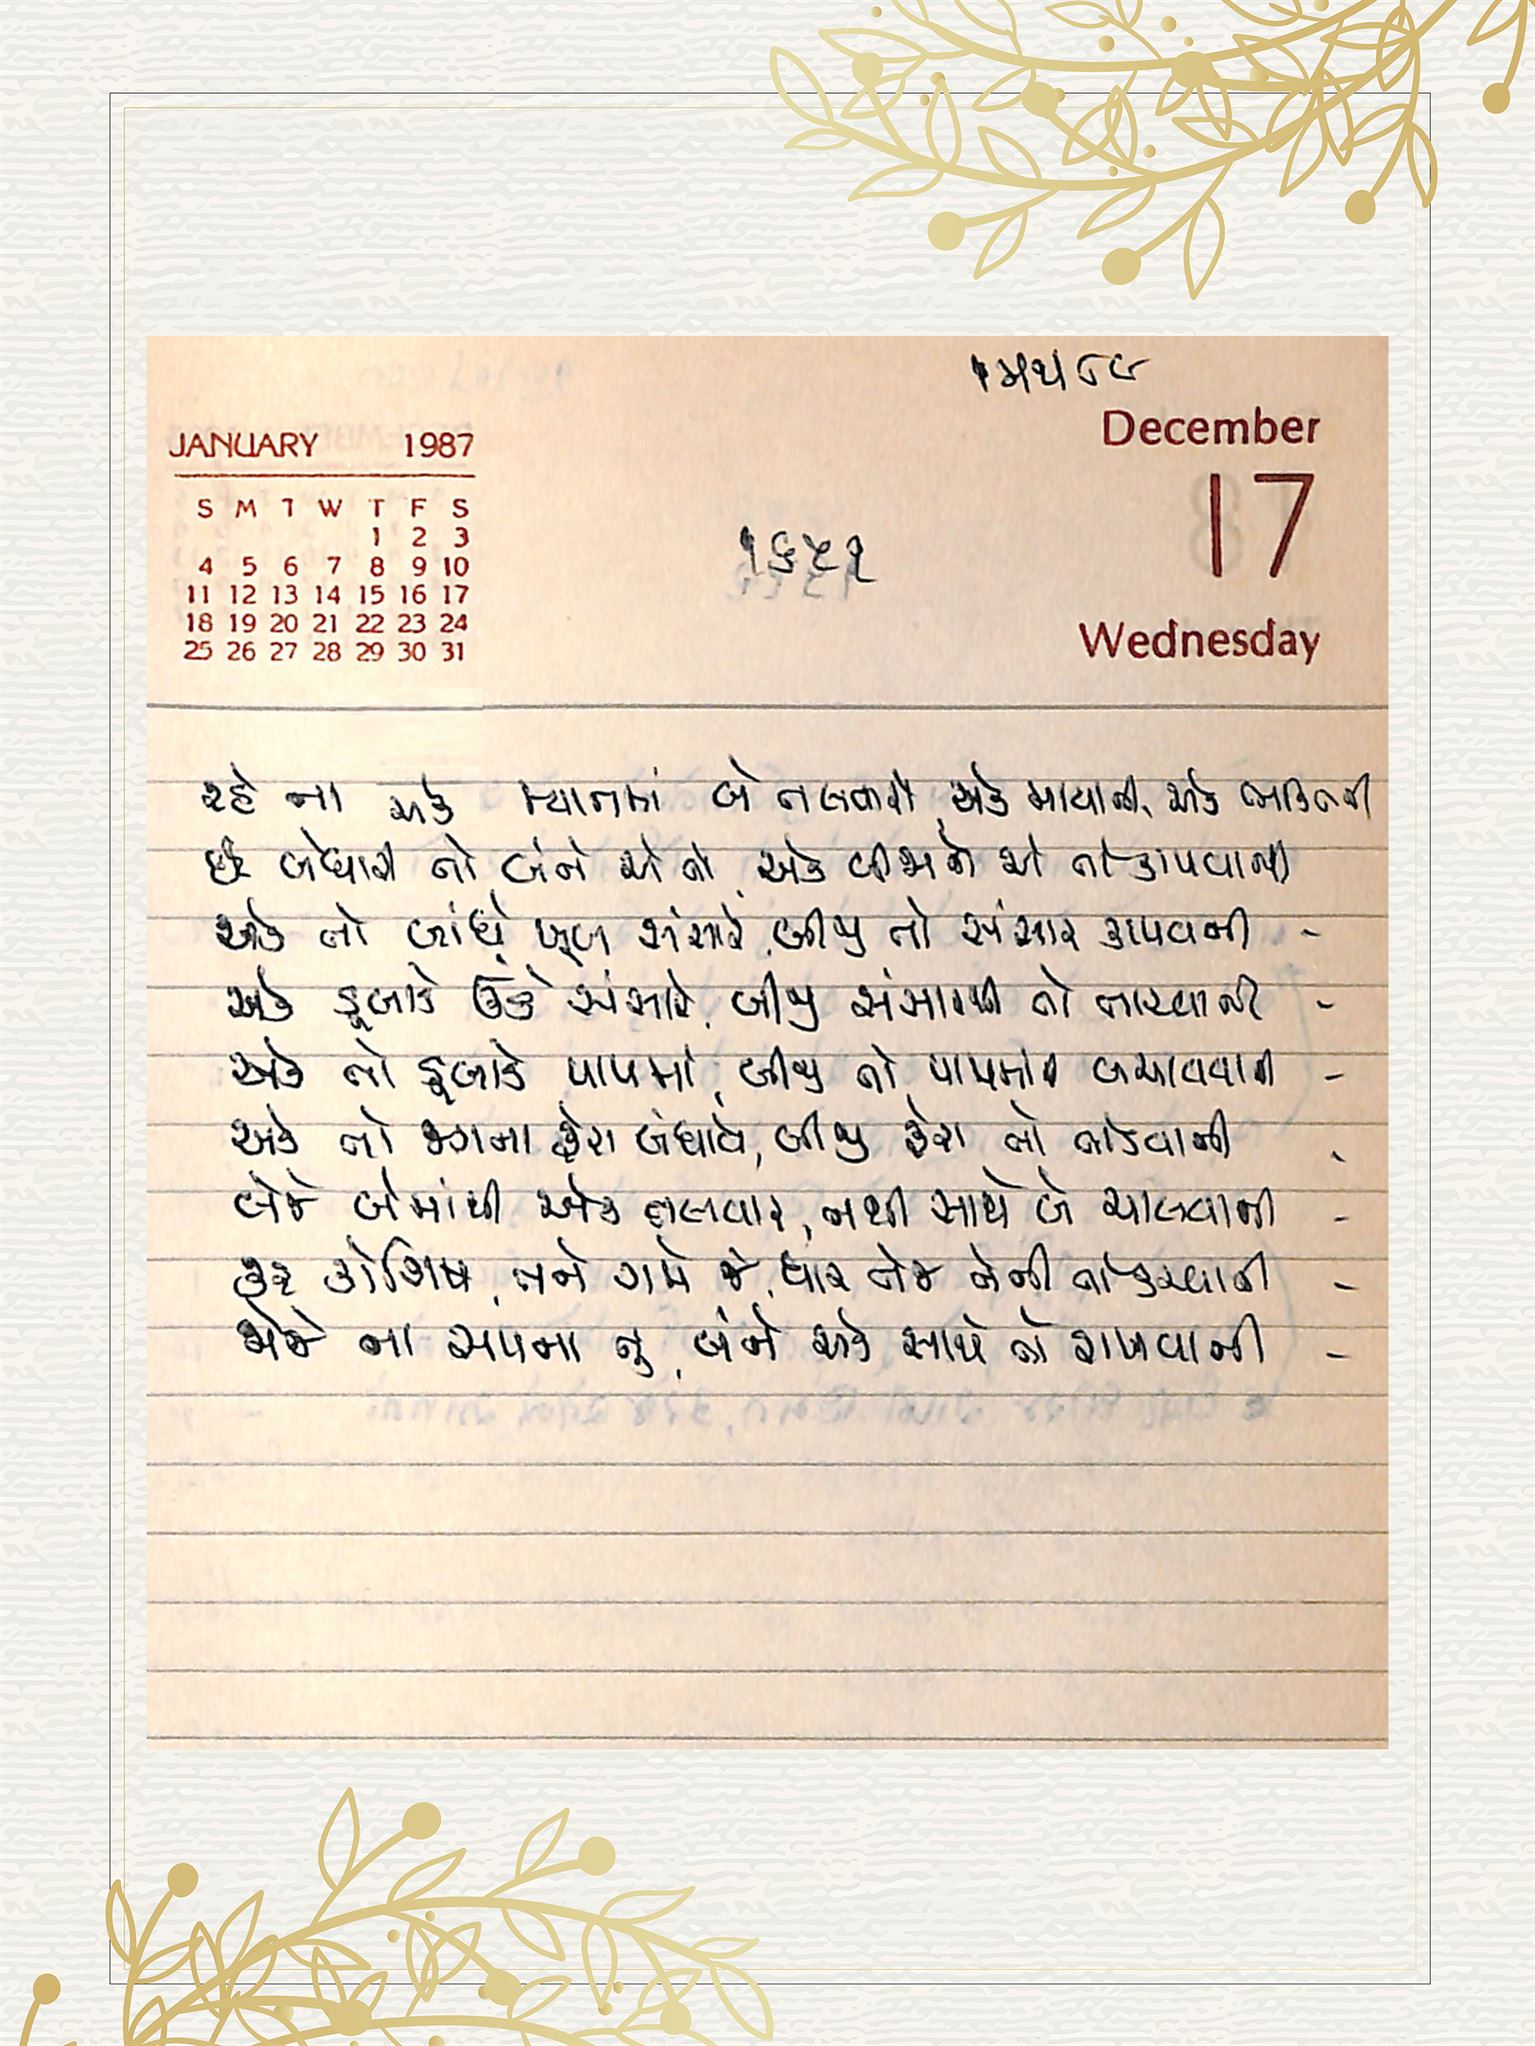 December
JANUARY 1987
17
S M T W T F S
1 2 3
4 5 6 7 8 9 10
11 12 13 14 15 16 17
18 19 20 21 22 23 24
25 26 27 28 29 30 31
Wednesday
રહે ના એક મ્યાનમાં બે તલવારો, એક માયાની, એક ભક્તિની
છે બેધારી તો બંને એ તો, એક બીજાને એ તો કાપવાની
એક તો બાંધે ખૂબ સંસારે, બીજી તો સંસાર કાપવાની -
એક ડૂબાડે ઊંડે સંસારે, બીજી સંસારથી તો તારવાની -
એક તો ડૂબાડે પાપમાં, બીજી તો પાપમાંથી બચાવવાની -
એક તો જગના ફેરા બંધાવે, બીજી ફેરા તો તોડવાની -
લેજે બેમાંથી એક તલવાર, નથી સાથે બે ચાલવાની -
કર કોશિષ, તને ગમે જે, ધાર તેજ તેની તો કરવાની -
જોજે ના સપના તુ, બંને એક સાથે તો રાખવાની -